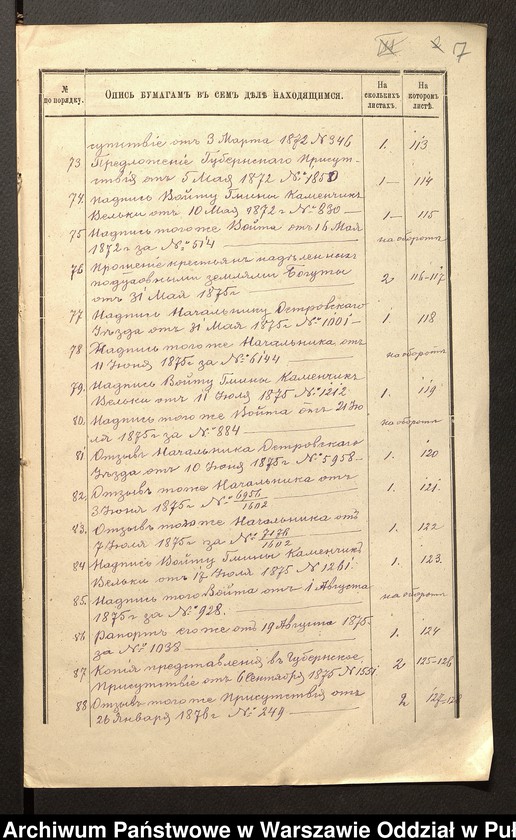 7
№ по порядку.
Опись бумагамъ въ семъ дѣлѣ находящимся.
На сколькихъ листахъ.
На которомъ листѣ.
сутствіе отъ 3 Марта 1872 № 346 1. 113
73 Предложеніе Губернскаго Присут-
ствія отъ 5 Мая 1872 № 1850 1 — 114
74. Надпись Войту Гмины Каменчикъ
Вельки отъ 10 Мая 1872 г № 830 — 1 — 115
75 Надпись того же Войта отъ 16 Мая
1872 г за № 514 на оборотѣ
76 Прошеніе крестьянъ надѣленныхъ
подуховными землями Богуты
отъ 31 Мая 1875 г 2 116-117
77 Надпись Начальнику Островскаго
Уѣзда отъ 31 Мая 1875 г № 1001 — 1 118
78 Надпись того же Начальника отъ
11 Іюня 1875 г за № 6144 на оборотѣ
79. Надпись Войту Гмины Каменчикъ
Вельки отъ 11 Іюля 1875 № 1212 1. 119
80. Надпись того же Войта отъ 21 Ію
ля 1875 г за № 884 на оборотѣ
81. Отзывъ Начальника Островскаго
Уѣзда отъ 10 Іюня 1875 г № 5958 — 1. 120
82. Отзывъ того же Начальника отъ
3 Іюня 1875 г № 6956/1602 1. 121.
83. Отзывъ того же Начальника отъ
7 Іюля 1875 г за № 7176/1602 1. 122
84 Надпись Войту Гмины Каменчикъ
Вельки отъ 17 Іюля 1875 № 1261. 1. 123.
85. Надпись того Войта отъ 1 Августа
1875 г за № 928. на оборотѣ
86 Рапортъ его же отъ 19 Августа 1875
за № 1038 1. 124
87 Копія представленія въ Губернское
Присутствіе отъ 6 Сентября 1875 № 1551 2 125-126
88 Отзывъ того же Присутствія отъ
26 Января 1876 г № 249 — 2 127-128
Archiwum Państwowe w Warszawie Oddział w Puł